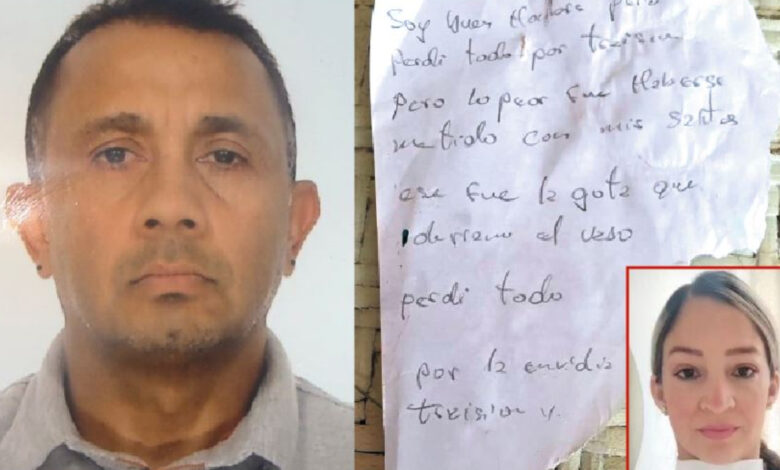 Soy
Perdi todo por traision
Pero lo peor fue Haberse
metido con mis santos
esa fue la gota que
derramo el vaso
perdi todo
por la envidia
traision y.